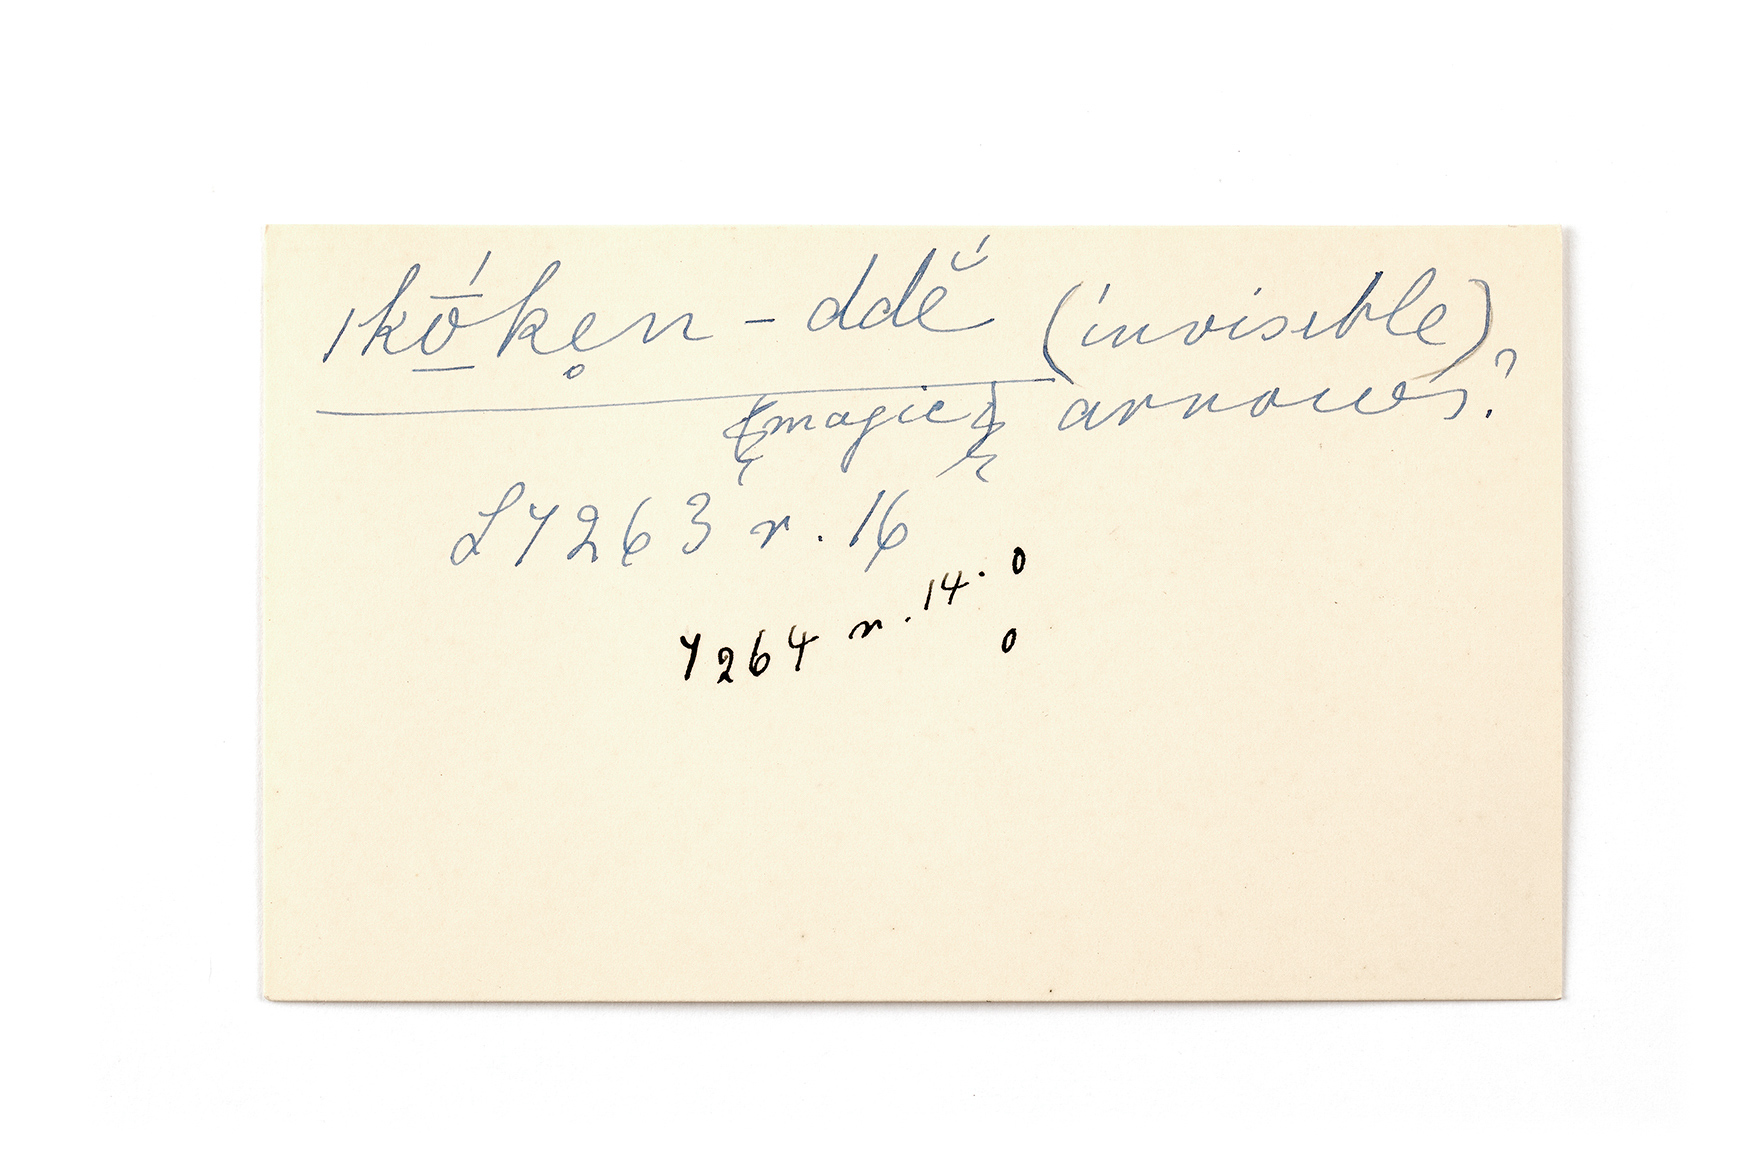 ıkṓ̱ke̥n - ddĕ́ (invisible)
{magic} arrows?
LY263 r. 16
Y264 r. 14. 0
0